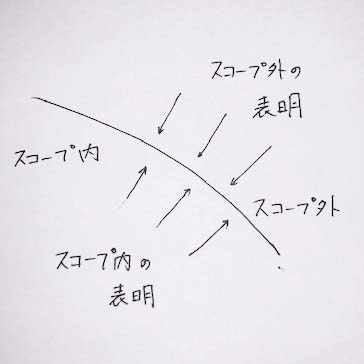 スコープ外の
表明
スコープ内
スコープ外
スコープ内の
表明